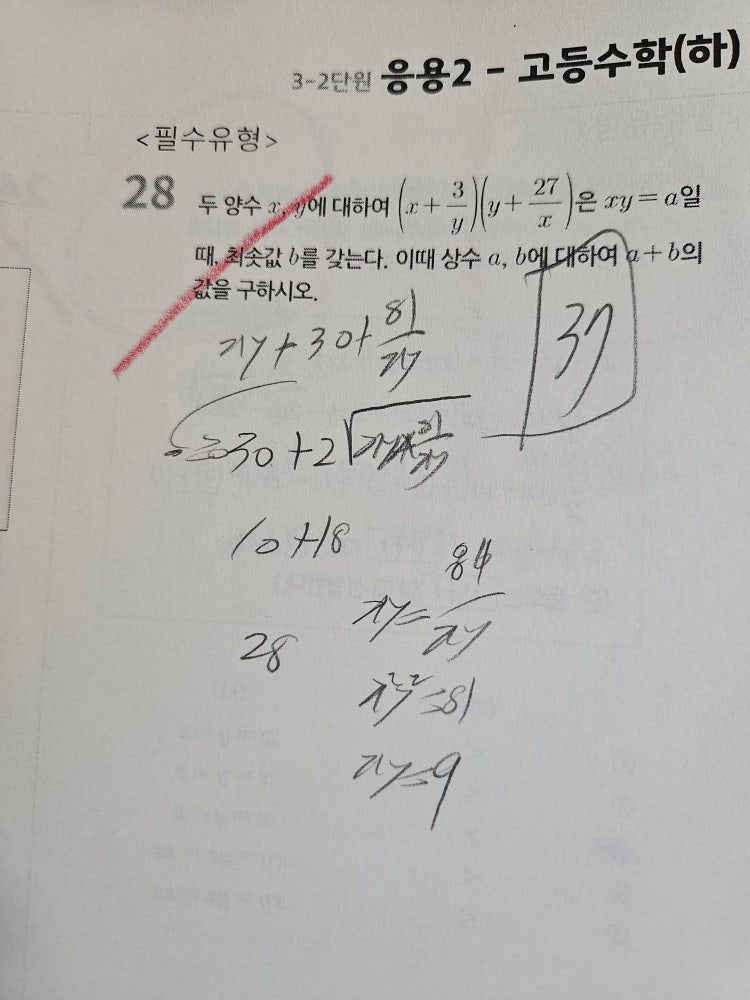 3-2단원 응용2 - 고등수학(하)
<필수유형>
28 두 양수 x, y에 대하여 (x + 3/y)(y + 27/x)은 xy = a일
때, 최솟값 b를 갖는다. 이때 상수 a, b에 대하여 a + b의
값을 구하시오.
xy + 30 + 81/xy
37
≥ 30 + 2√
10 + 18
28
xy = 81/xy
x²y² = 81
xy = 9